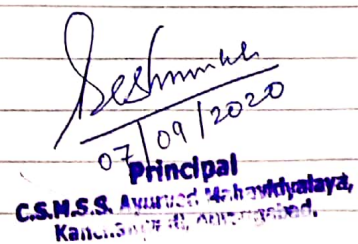 Deshmukh
07/09/2020
Principal
C.S.M.S.S. Ayurved Mahavidyalaya,
Kanchanwadi, Aurangabad.